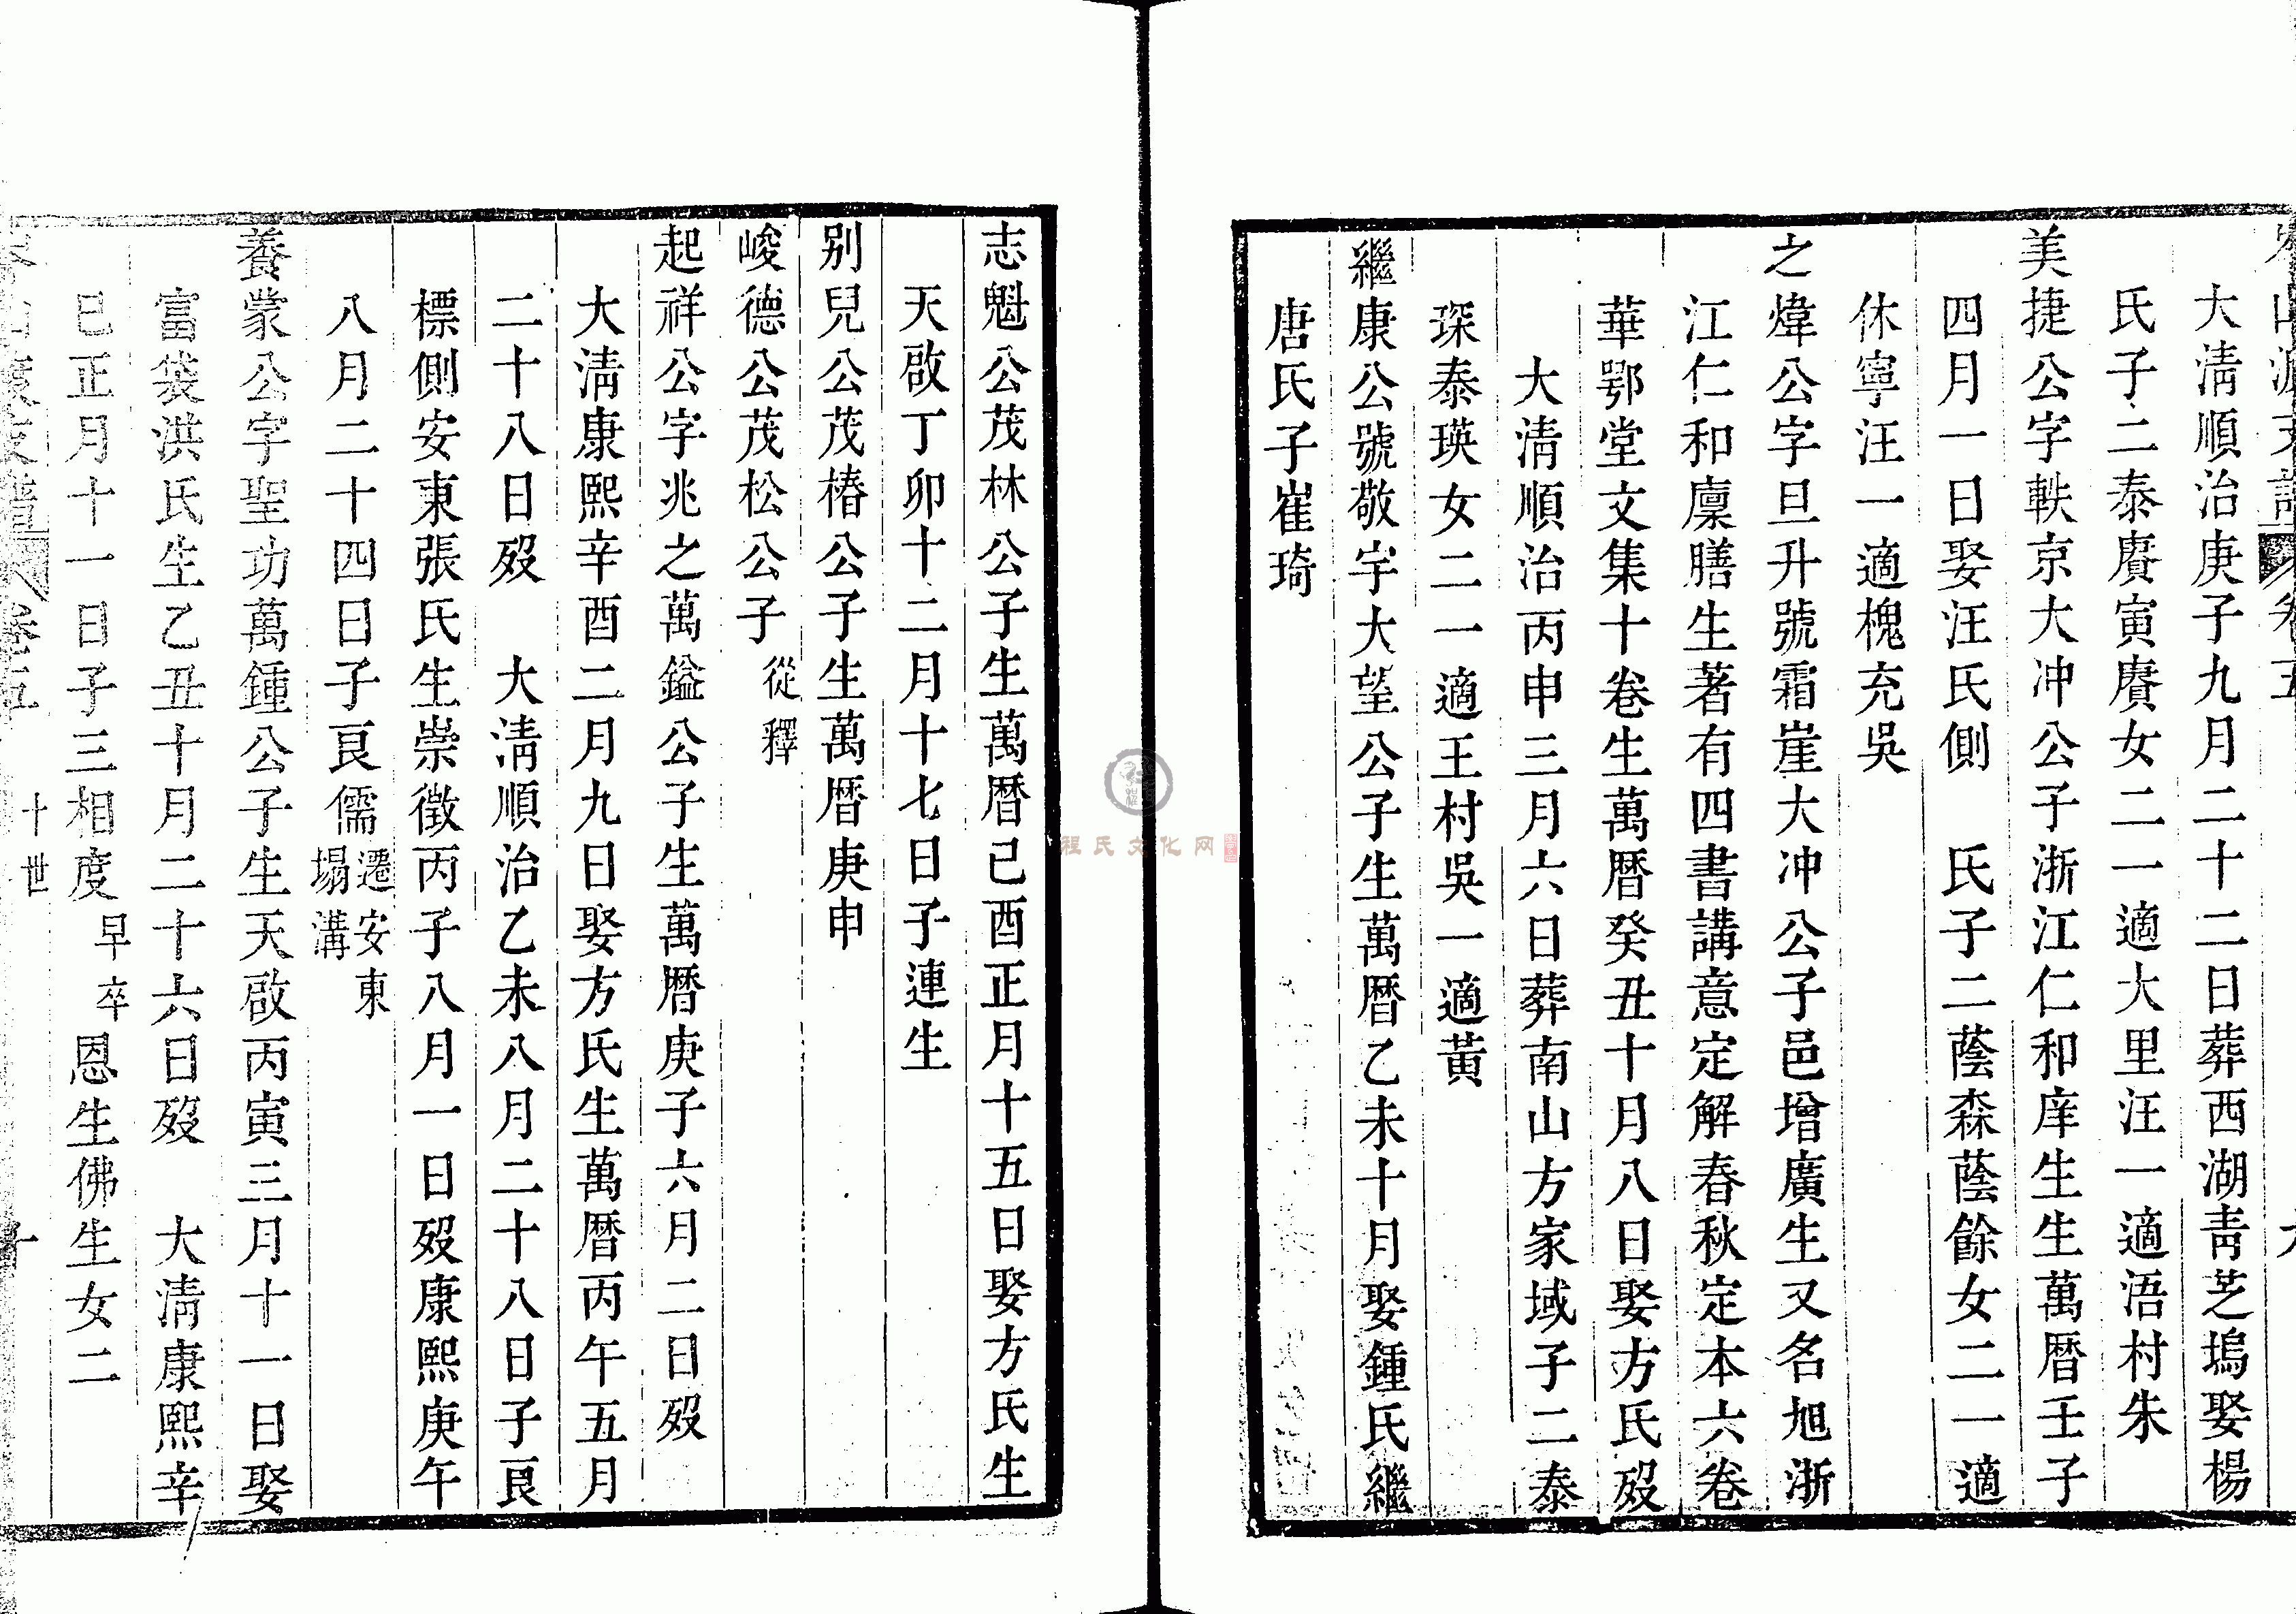 大清順治庚子九月二十二日葬西湖青芝塢娶楊
氏子二泰賡寅賡女二一適大里汪一適浯村朱
美捷公字軼京大冲公子浙江仁和庠生生萬曆壬子
四月一日娶汪氏側　氏子二蔭森蔭餘女二一適
休寧汪一適槐充吳
之煒公字旦升號霜崖大冲公子邑增廣生又名旭浙
江仁和廩膳生著有四書講意定解春秋定本六卷
華鄂堂文集十卷生萬曆癸丑十月八日娶方氏歿
大清順治丙申三月六日葬南山方家域子二泰
琛泰瑛女二一適王村吳一適黃
繼康公號敬宇大望公子生萬曆乙未十月娶鍾氏繼
唐氏子崔琦
志魁公茂林公子生萬曆己酉正月十五日娶方氏生
天啟丁卯十二月十七日子連生
別兒公茂椿公子生萬曆庚申
峻德公茂松公子從釋
起祥公字兆之萬鎰公子生萬曆庚子六月二日歿
大清康熙辛酉二月九日娶方氏生萬曆丙午五月
二十八日歿　大清順治乙未八月二十八日子良
標側安東張氏生崇徵丙子八月一日歿康熙庚午
八月二十四日子良儒遷安東塌溝
養蒙公字聖功萬鍾公子生天啟丙寅三月十一日娶
富裟洪氏生乙丑十月二十六日歿　大清康熙辛
巳正月十一日子三相度早卒恩生佛生女二
卷五　十世　十
程氏文化网